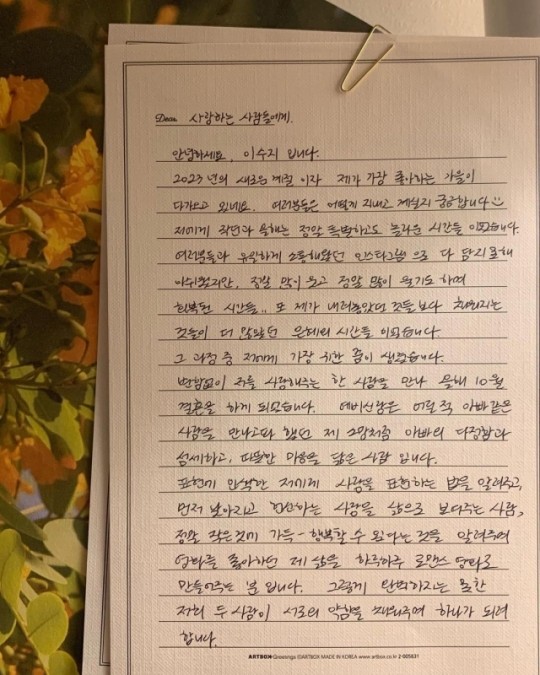 Dear. 사랑하는 사람들에게.
안녕하세요. 이수지 입니다.
2023년의 새로운 계절 이자 제가 가장 좋아하는 가을이
다가오고 있네요. 여러분들은 어떻게 지내고 계실지 궁금합니다
저에게 작년과 올해는 정말 특별하고도 놀라운 시간들 이었습니다.
여러분들과 유일하게 소통해왔던 인스타그램 으로 다 담지 못해
아쉬웠지만, 정말 많이 웃고 정말 많이 울기도 하며
회복된 시간들.. 또 제가 내려놓았던 것들 보다 채워지는
것들이 더 많았던 은혜의 시간들 이었습니다
그 과정 중 저에게 가장 귀한 꿈이 생겼습니다.
변함없이 저를 사랑해주는 한 사람을 만나 올해 10월
결혼을 하게 되었습니다. 예비신랑은 어릴 적 아빠같은
사람을 만나고파 했던 제 소망처럼 아빠의 다정함과
섬세하고, 따뜻한 마음을 닮은 사람 입니다.
표현에 인색한 저에게 사랑을 표현하는 법을 알려주고,
먼저 낮아지고 헌신하는 사랑을 삶으로 보여주는 사람,
정말 작은것에 가득 - 행복할 수 있다는 것을 알려주며
영화를 좋아하던 제 삶을 하루하루 로맨스 영화로
만들어주는 분 입니다. 그렇게 완벽하지는 못한
저희 두 사람이 서로의 약함을 채워주며 하나가 되려
합니다.
ARTBOX Greetings ©ARTBOX MADE IN KOREA www.artbox.co.kr 2-005631